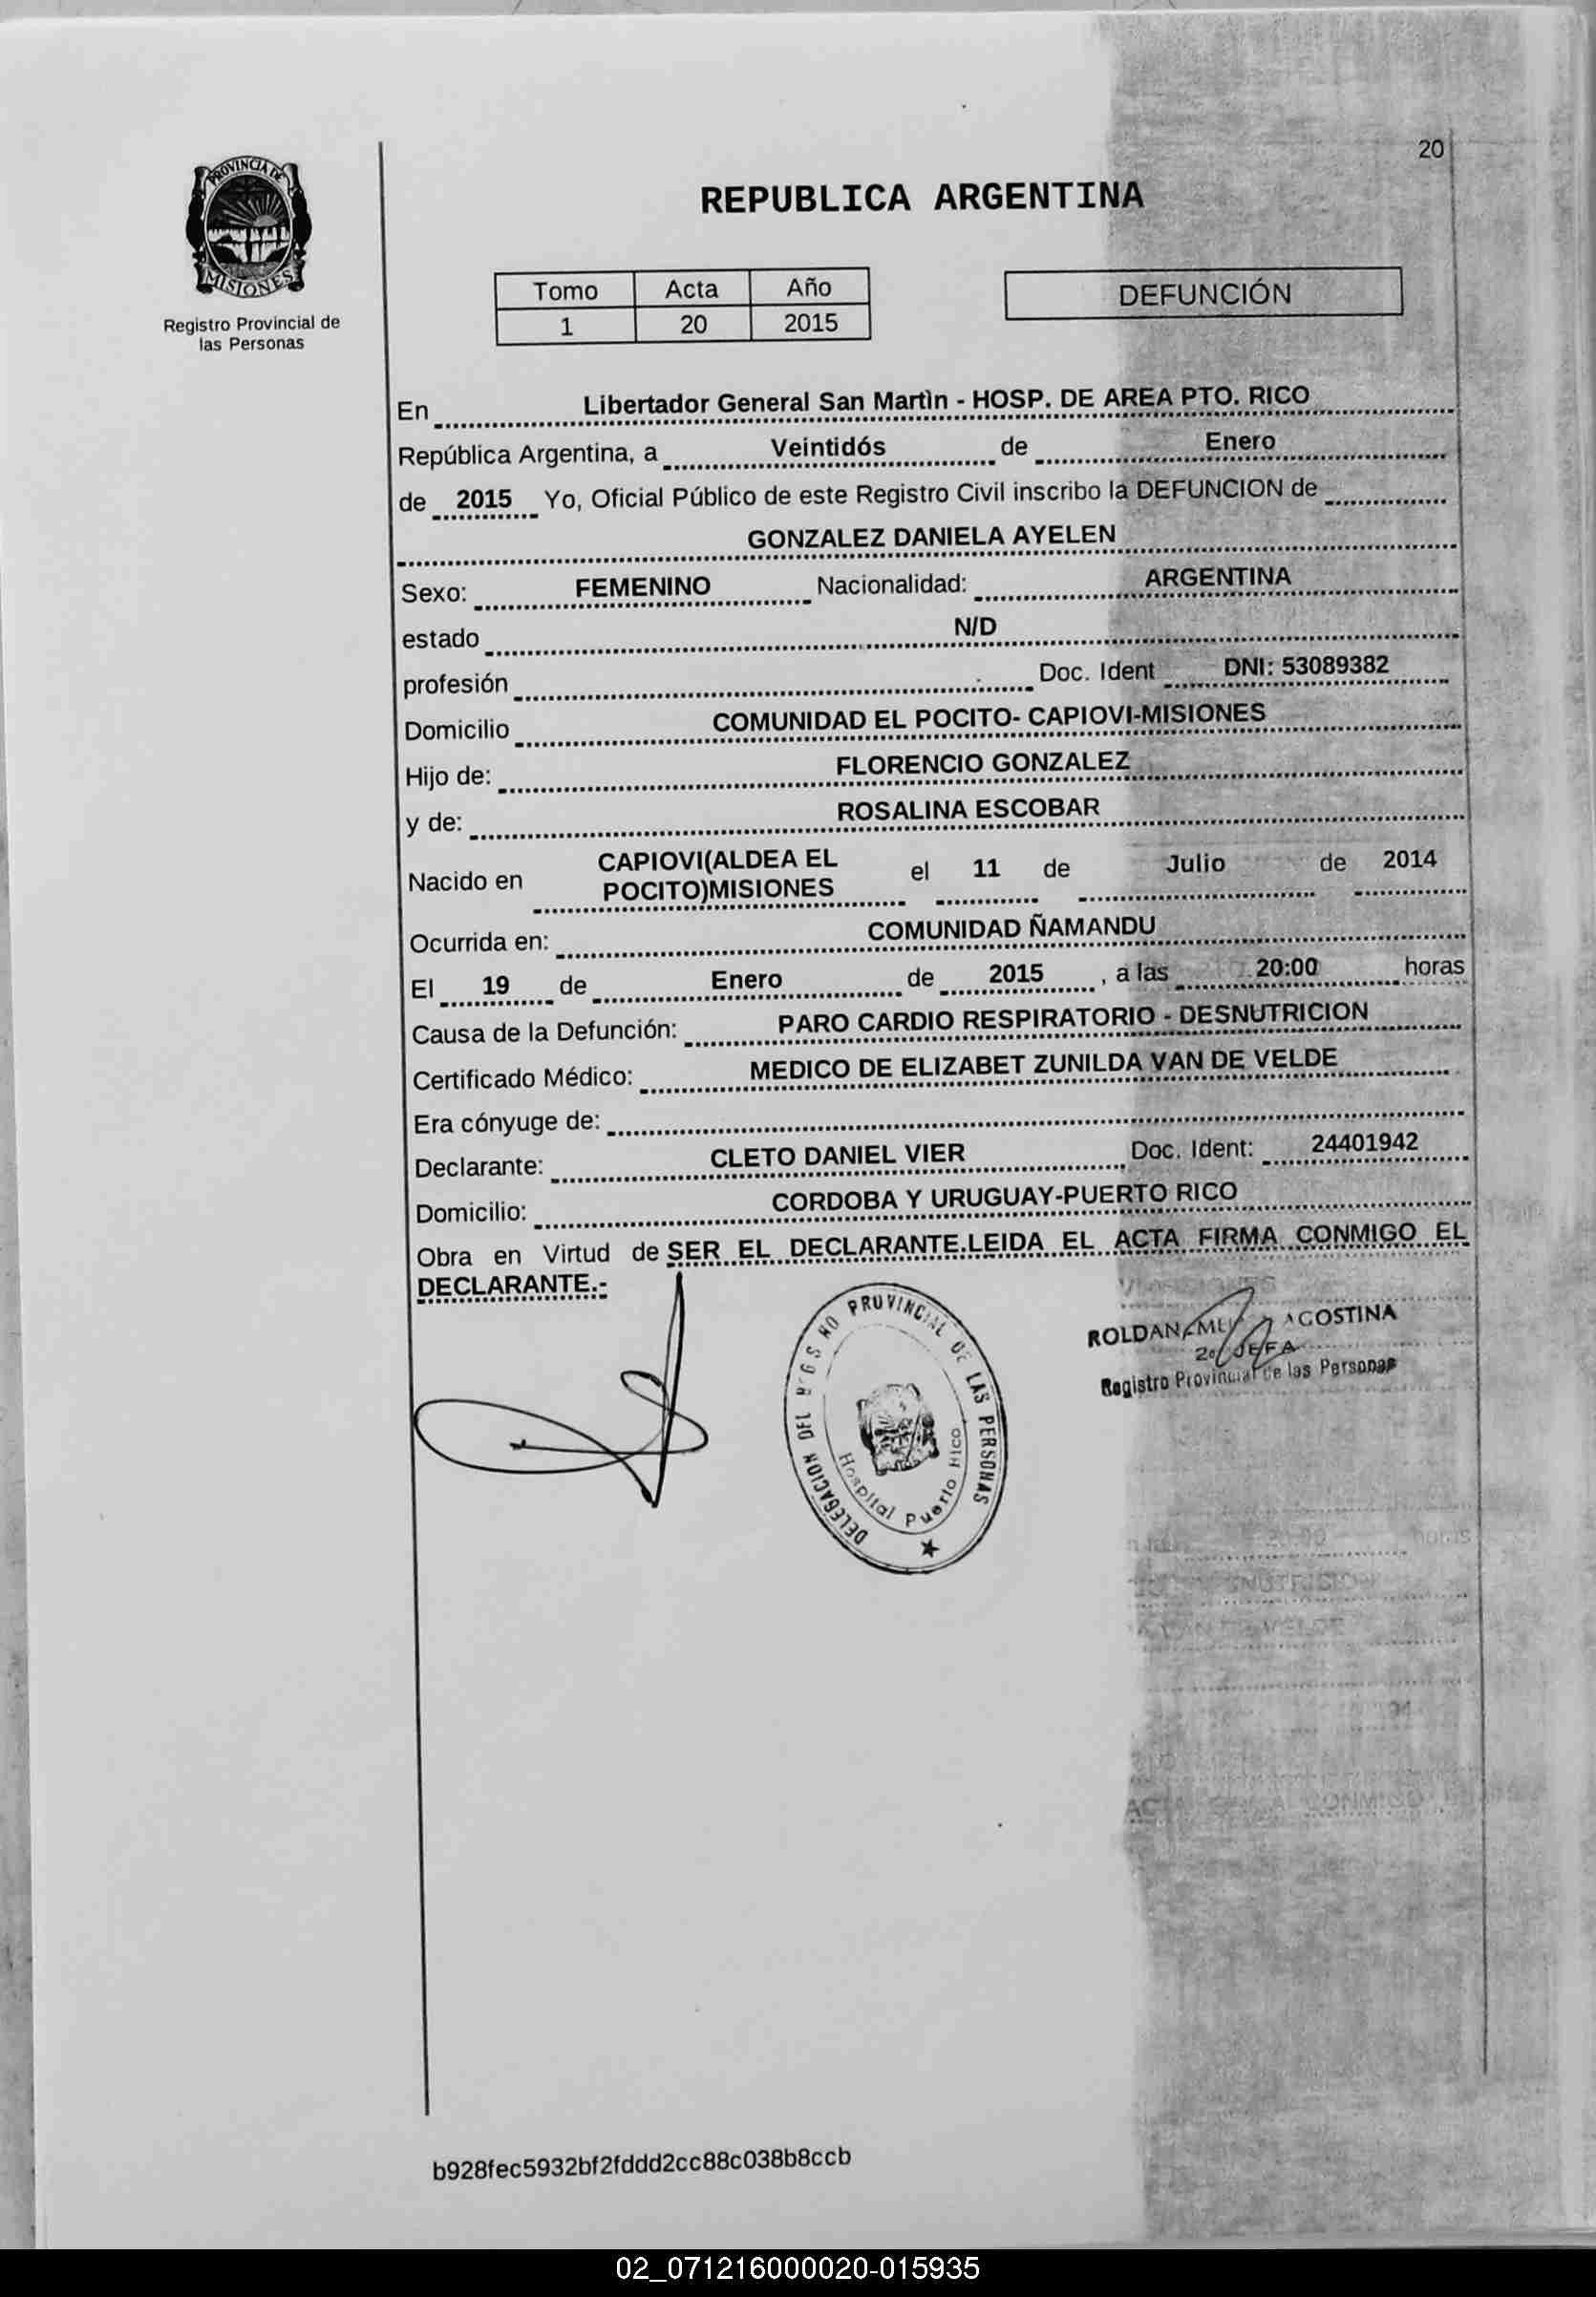 20
PROVINCIA DE
MISIONES
Registro Provincial de
las Personas
REPUBLICA ARGENTINA
Tomo Acta Año
1 20 2015
DEFUNCIÓN
En Libertador General San Martìn - HOSP. DE AREA PTO. RICO
República Argentina, a Veintidós de Enero
de 2015 Yo, Oficial Público de este Registro Civil inscribo la DEFUNCION de
GONZALEZ DANIELA AYELEN
Sexo: FEMENINO Nacionalidad: ARGENTINA
estado N/D
profesión Doc. Ident DNI: 53089382
Domicilio COMUNIDAD EL POCITO- CAPIOVI-MISIONES
Hijo de: FLORENCIO GONZALEZ
y de: ROSALINA ESCOBAR
Nacido en CAPIOVI(ALDEA EL POCITO)MISIONES el 11 de Julio de 2014
Ocurrida en: COMUNIDAD ÑAMANDU
El 19 de Enero de 2015 , a las 20:00 horas
Causa de la Defunción: PARO CARDIO RESPIRATORIO - DESNUTRICION
Certificado Médico: MEDICO DE ELIZABET ZUNILDA VAN DE VELDE
Era cónyuge de:
Declarante: CLETO DANIEL VIER Doc. Ident: 24401942
Domicilio: CORDOBA Y URUGUAY-PUERTO RICO
Obra en Virtud de SER EL DECLARANTE.LEIDA EL ACTA FIRMA CONMIGO EL
DECLARANTE.-
PROVINCIAL DE LAS PERSONAS
DELEGACION DEL
Hospital Puerto Rico
ROLDAN AGOSTINA
JEFA
Registro Provincial de las Personas
b928fec5932bf2fddd2cc88c038b8ccb
02_071216000020-015935